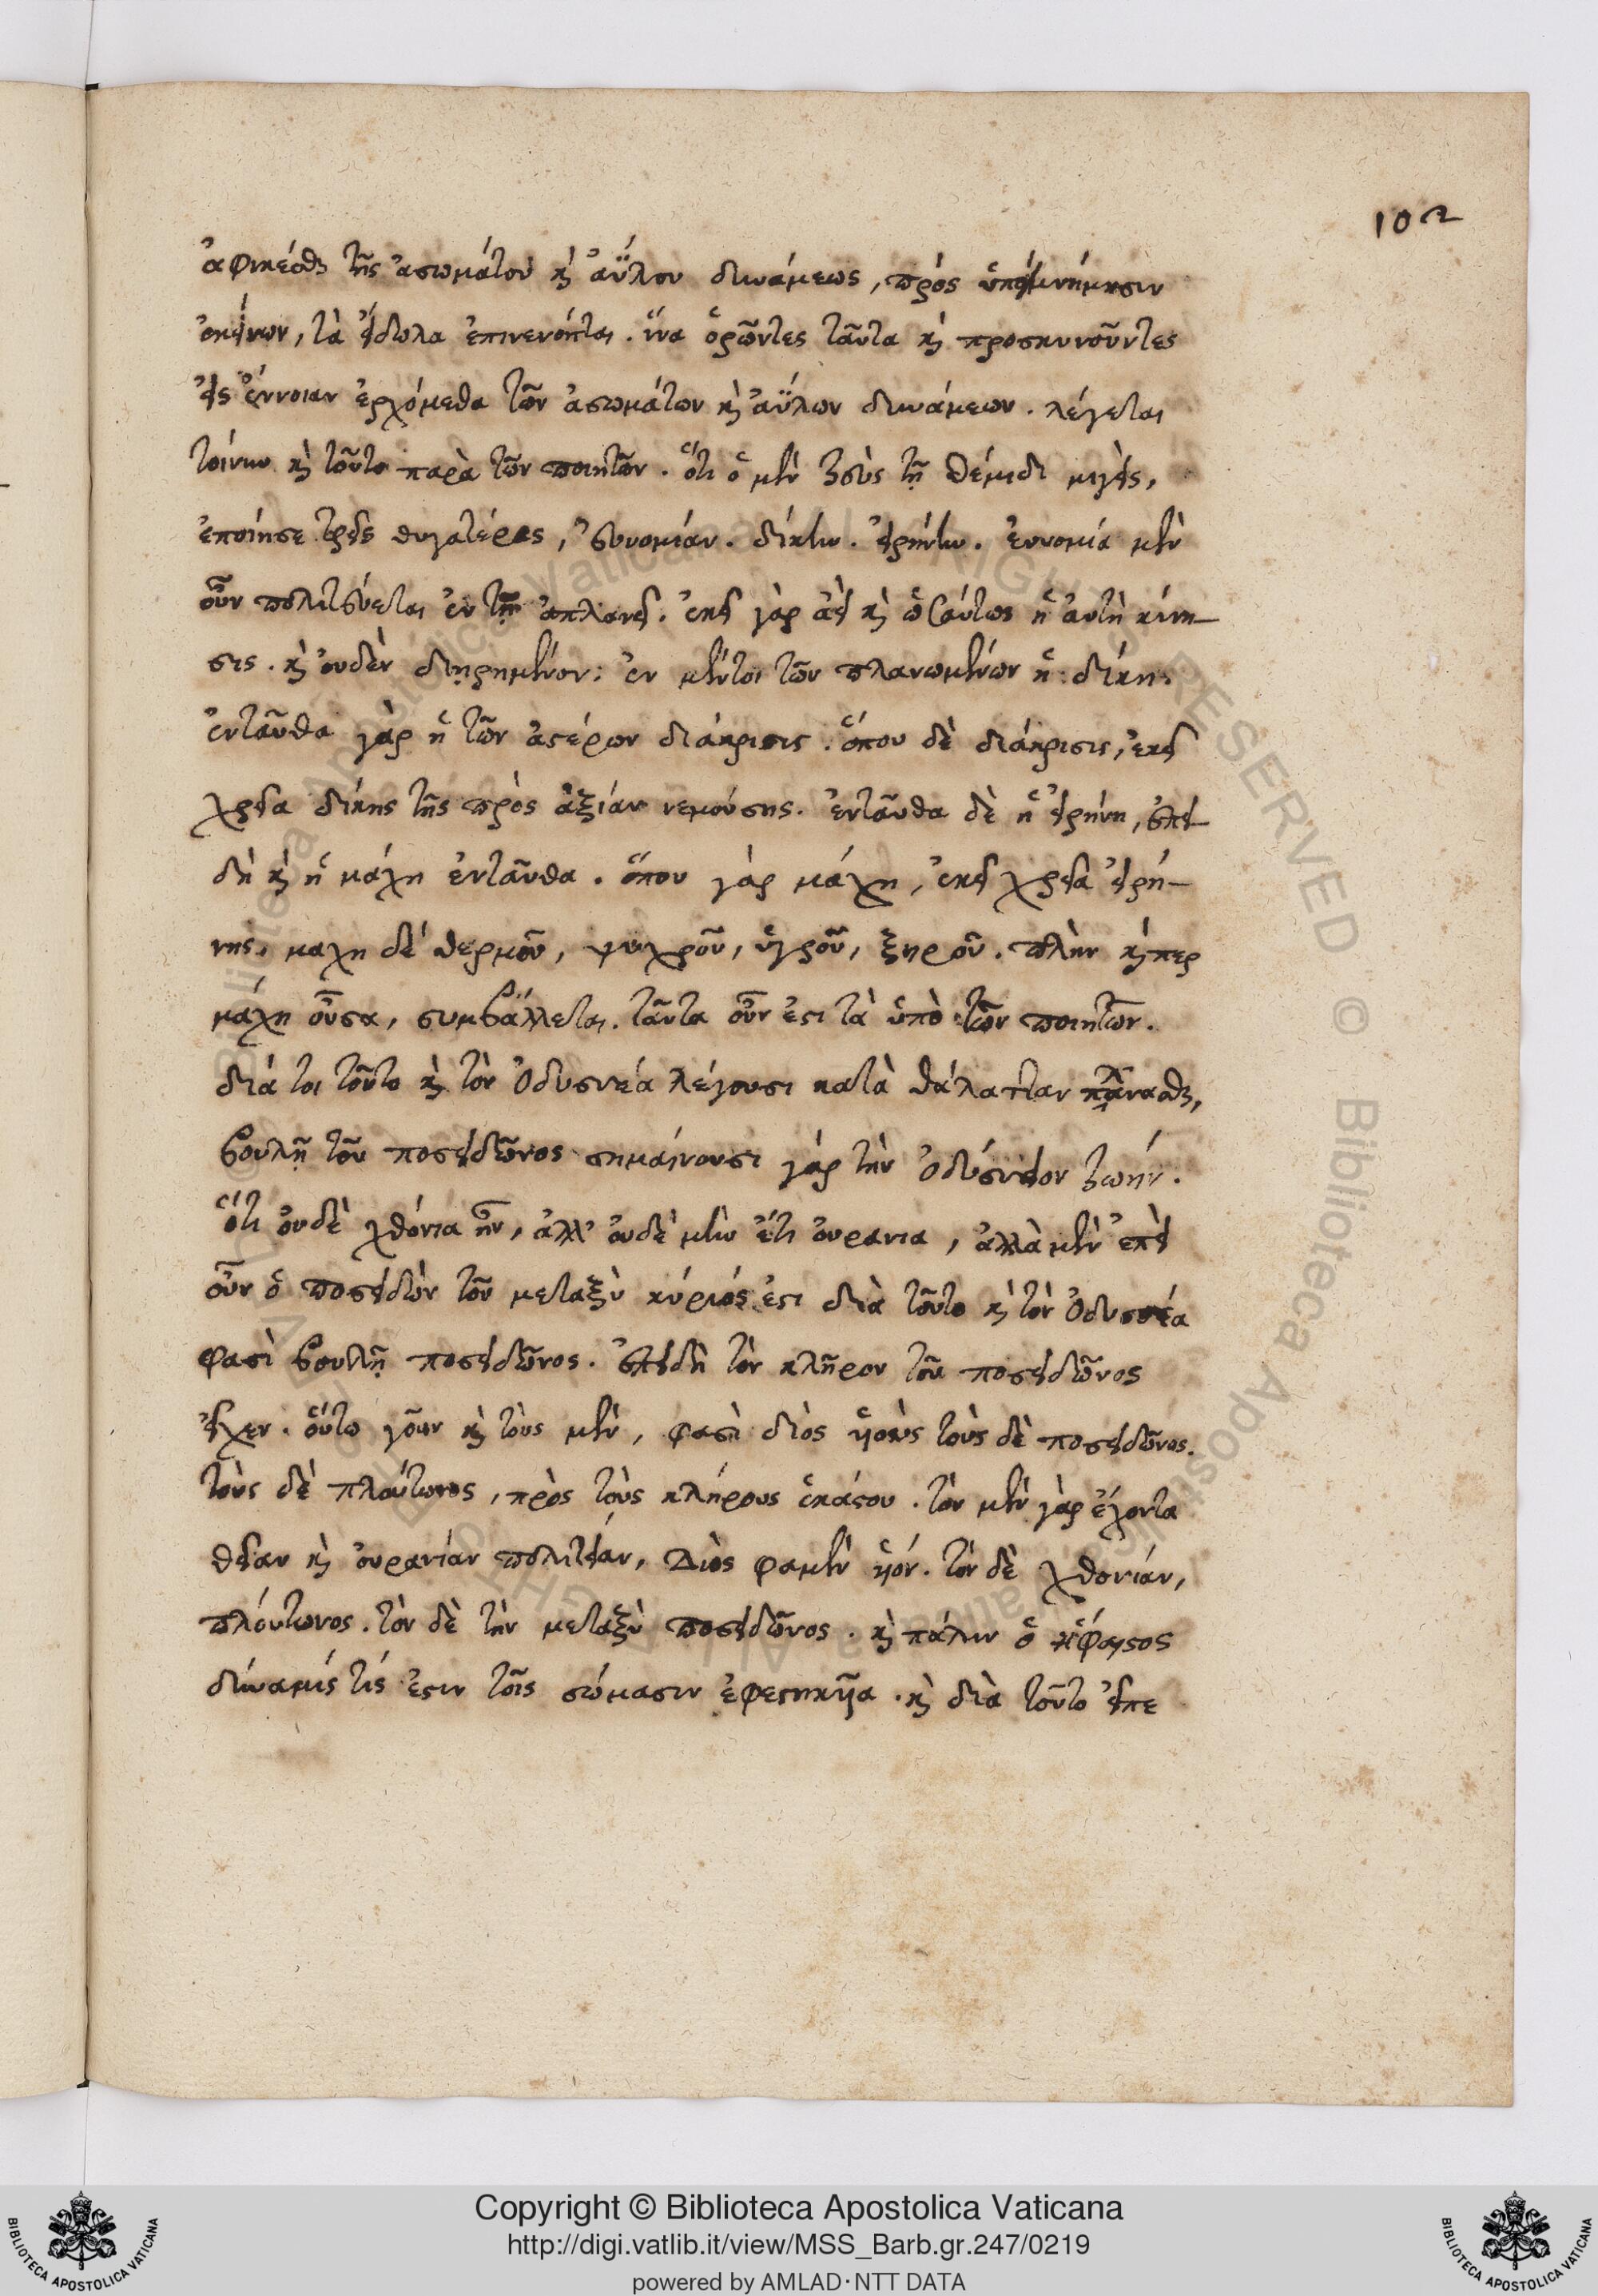 102
ἀφικέσθαι τῆς ἀσωμάτου καὶ ἀΰλου δυνάμεως, πρὸς ὑπόμνησιν
ἐκείνων, τὰ εἴδωλα ἐπινενόηται. ἵνα ὁρῶντες ταῦτα καὶ προσκυνοῦντες
εἰς ἔννοιαν ἐρχόμεθα τῶν ἀσωμάτων καὶ ἀΰλων δυνάμεων. λέγεται
τοίνυν καὶ τοῦτο παρὰ τῶν ποιητῶν. ὅτι ὁ μὲν ζεὺς τῇ θέμιδι μιγεὶς,
ἐποίησε τρεῖς θυγατέρας, εὐνομίαν. δίκην. εἰρήνην. ἐυνομία μὲν
οὖν πολιτεύεται ἐν τῇ ἀπλανεῖ. ἐκεῖ γὰρ ἀεὶ καὶ ὡσαύτως ἡ ἀυτὴ κίνη-
σις. καὶ ουδὲν διῃρημένον: ἐν μέντοι τῶν πλανωμένων ἡ: δίκη.
ἐνταῦθα γὰρ ἡ τῶν ἀστέρων διάκρισις. ὅπου δὲ διάκρισις, ἐκεῖ
χρεία δίκης τῆς πρὸς ἀξίαν νεμούσης. ἐνταῦθα δὲ ἡ εἰρήνη, ἐπει-
δὴ καὶ ἡ μάχη ἐνταῦθα. ὅπου γὰρ μάχη, ἐκεῖ χρεία εἰρή-
νης, μαχη δὲ θερμοῦ, ψυχροῦ, ὑγροῦ, ξηροῦ. πλὴν καίπερ
μάχη οὖσα, συμβάλλεται. ταῦτα οὖν ἐστι τὰ ὑπὸ τῶν ποιητῶν.
διά τοι τοῦτο καὶ τὸν Ὀδυσσέα λέγουσι κατὰ θάλατταν πλανᾶσθαι,
βουλῇ τοῦ ποσειδῶνος σημαίνουσι γὰρ τὴν Ὀδύσσειον ζωήν.
ὅτι ὀυδὲ χθόνια ἦν, ἀλλ' ὀυδὲ μὴν ἔτι ὀυρανια, ἀλλὰ μὴν ἐπεὶ
οὖν ὁ ποσειδῶν τοῦ μεταξὺ κύριός ἐστι διὰ τοῦτο καὶ τὸν Ὀδυσσέα
φασὶ βουλῇ ποσειδῶνος. ἐπειδὴ τὸν κλῆρον τοῦ ποσειδῶνος
εἶχεν. οὕτω γοῦν καὶ τοὺς μὲν, φασὶ διὸς ὑιοὺς τοὺς δὲ ποσειδῶνος.
τοὺς δὲ πλούτωνος, πρὸς τοὺς κλήρους ἑκάστου. τὸν μὲν γὰρ ἔχοντα
θείαν καὶ ὀυρανίαν πολιτείαν, Διὸς φαμὲν ὑιόν. τὸν δὲ χθονίαν,
πλούτωνος. τὸν δὲ τὴν μεταξὺ ποσειδῶνος. καὶ πάλιν ὁ ἥφαιστος
δύναμίς τίς ἐστιν τοῖς σώμασιν ἐφεστηκυῖα. καὶ διὰ τοῦτο εἶπε
Copyright © Biblioteca Apostolica Vaticana
http://digi.vatlib.it/view/MSS_Barb.gr.247/0219
powered by AMLAD·NTT DATA
BIBLIOTECA APOSTOLICA VATICANA
BIBLIOTECA APOSTOLICA VATICANA